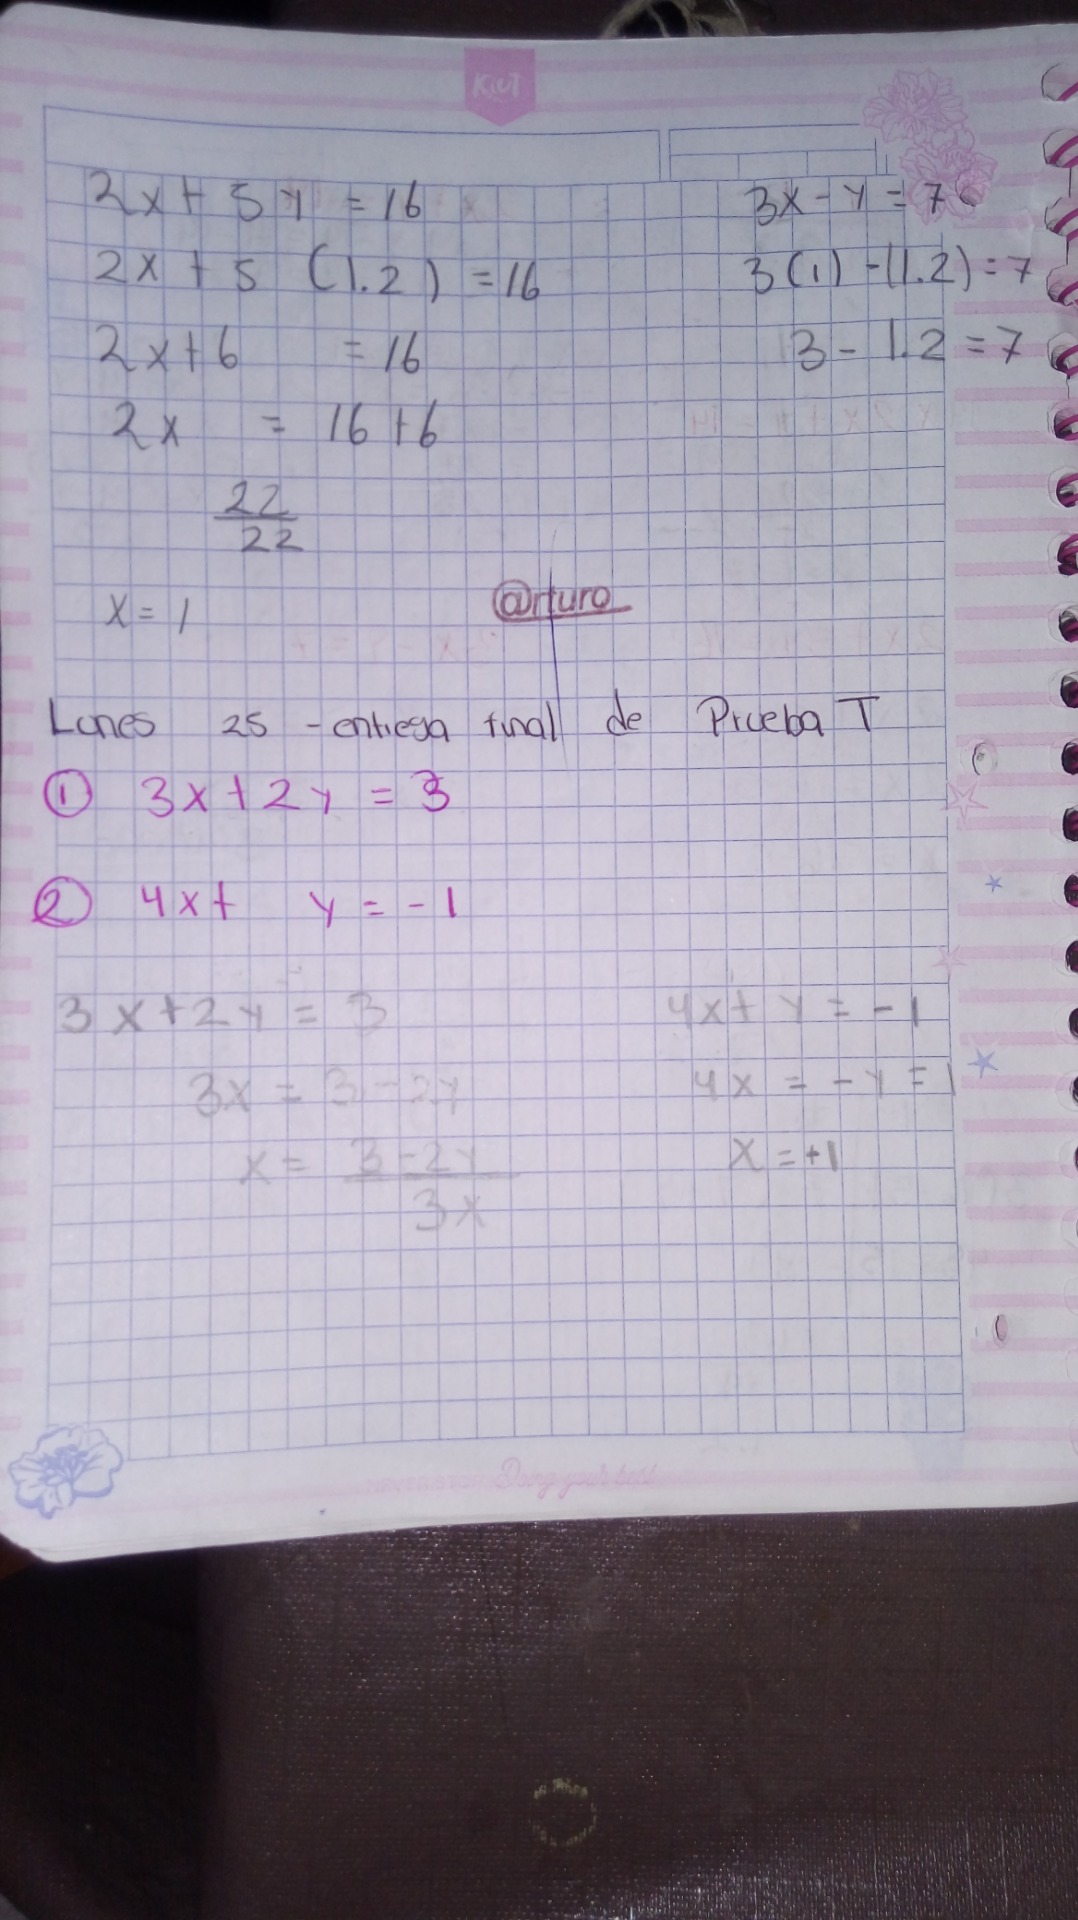 KiuT
2x + 5y = 16
2x + 5 (1.2) = 16
2x + 6 = 16
2x = 16 + 6
22
22
x = 1
3x - y = 7
3(1) - (1.2) = 7
3 - 1.2 = 7
@rturo
Lunes 25 - entrega final de Prueba T
① 3x + 2y = 3
② 4x + y = -1
3x + 2y = 3
3x = 3 - 2y
x = 3 - 2y
3x
4x + y = -1
4x = - y = 1
x = +1